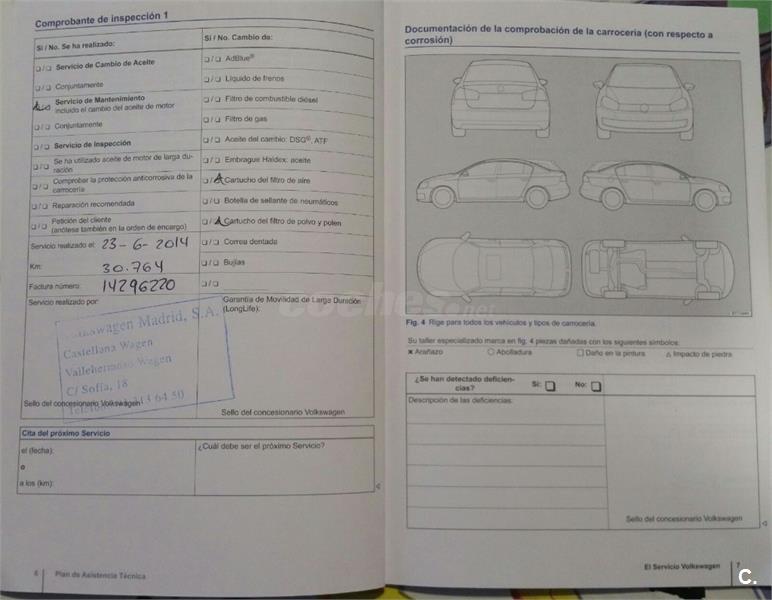 Comprobante de inspección 1
Sí / No. Se ha realizado:
Servicio de Cambio de Aceite
Conjuntamente
Servicio de Mantenimiento
incluido el cambio del aceite de motor
Conjuntamente
Servicio de Inspección
Se ha utilizado aceite de motor de larga du-
ración
Comprobar la protección anticorrosiva de la
carrocería
Reparación recomendada
Petición del cliente
(anótese también en la orden de encargo)
Servicio realizado el: 23-6-2014
Km: 30.764
Factura número: 14296220
Servicio realizado por:
Volkswagen Madrid, S.A.
Castellana Wagen
Vallehermoso Wagen
C/ Sofía, 18
64 50
Sello del concesionario Volkswagen
Sí / No. Cambio de:
AdBlue®
Líquido de frenos
Filtro de combustible diésel
Filtro de gas
Aceite del cambio: DSG®, ATF
Embrague Haldex: aceite
Cartucho del filtro de aire
Botella de sellante de neumáticos
Cartucho del filtro de polvo y polen
Correa dentada
Bujías
Garantía de Movilidad de Larga Duración
(LongLife):
Sello del concesionario Volkswagen
Cita del próximo Servicio
el (fecha):
o
a los (km):
¿Cuál debe ser el próximo Servicio?
6 Plan de Asistencia Técnica
Documentación de la comprobación de la carrocería (con respecto a
corrosión)
Fig. 4 Rige para todos los vehículos y tipos de carrocería.
Su taller especializado marca en fig. 4 piezas dañadas con los siguientes símbolos:
× Arañazo ○ Abolladura □ Daño en la pintura △ Impacto de piedra
¿Se han detectado deficien-
cias?
Sí: No:
Descripción de las deficiencias:
Sello del concesionario Volkswagen
El Servicio Volkswagen 7
coches.net
C.